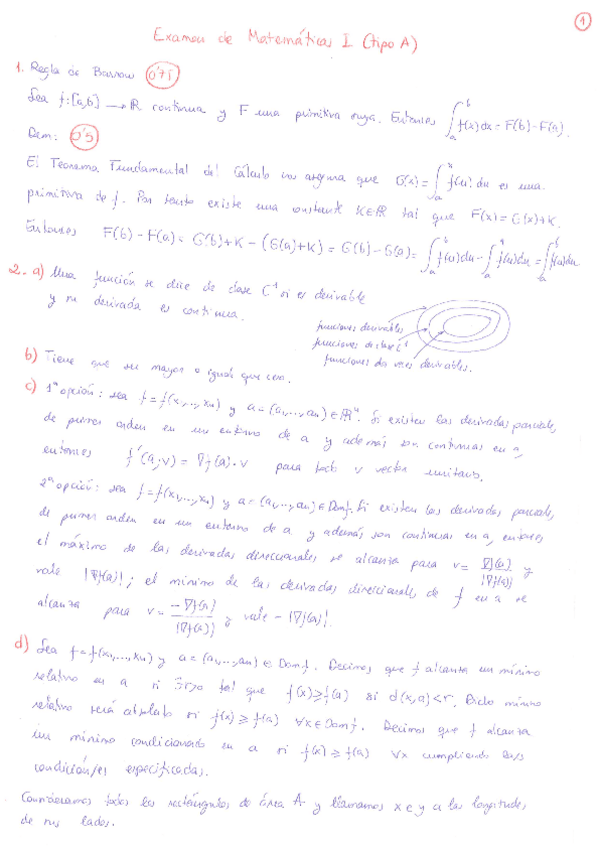 1
Examen de Matemáticas I (tipo A)
1. Regla de Barrow 0'75
Sea f:[a,b] → ℝ continua y F una primitiva suya. Entonces ∫_a^b f(x)dx = F(b)-F(a).
Dem: 0'5
El Teorema Fundamental del Cálculo nos asegura que G(x) = ∫_a^x f(u) du es una
primitiva de f. Por tanto existe una constante K∈ℝ tal que F(x) = G(x)+K.
Entonces F(b)-F(a) = G(b)+K-(G(a)+K) = G(b)-G(a) = ∫_a^b f(u)du - ∫_a^a f(u)du = ∫_a^b f(u)du
2. a) Una función se dice de clase C¹ si es derivable
y su derivada es continua.
funciones derivables
funciones de clase C¹
funciones dos veces derivables.
b) Tiene que ser mayor o igual que cero.
c) 1ª opción: sea f=f(x₁,...,xₙ) y a=(a₁,...,aₙ)∈ℝⁿ. Si existen las derivadas parciales,
de primer orden en un entorno de a y además son continuas en a,
entonces f'(a;v) = ∇f(a)·v para todo v vector unitario.
2ª opción: sea f=f(x₁,...,xₙ) y a=(a₁,...,aₙ)∈Domf. Si existen las derivadas parciales,
de primer orden en un entorno de a y además son continuas en a, entonces
el máximo de las derivadas direccionales se alcanza para v= ∇f(a)/|∇f(a)| y
vale |∇f(a)|; el mínimo de las derivadas direccionales de f en a se
alcanza para v= -∇f(a)/|∇f(a)| y vale -|∇f(a)|.
d) Sea f=f(x₁,...,xₙ) y a=(a₁,...,aₙ)∈Domf. Decimos que f alcanza un mínimo
relativo en a si ∃r>0 tal que f(x)≥f(a) si d(x,a)<r. Dicho mínimo
relativo será absoluto si f(x)≥f(a) ∀x∈Domf. Decimos que f alcanza
un mínimo condicionado en a si f(x)≥f(a) ∀x cumpliendo
condición/es especificadas.
Consideramos todos los rectángulos de área A y llamamos x e y a las longitudes
de sus lados.